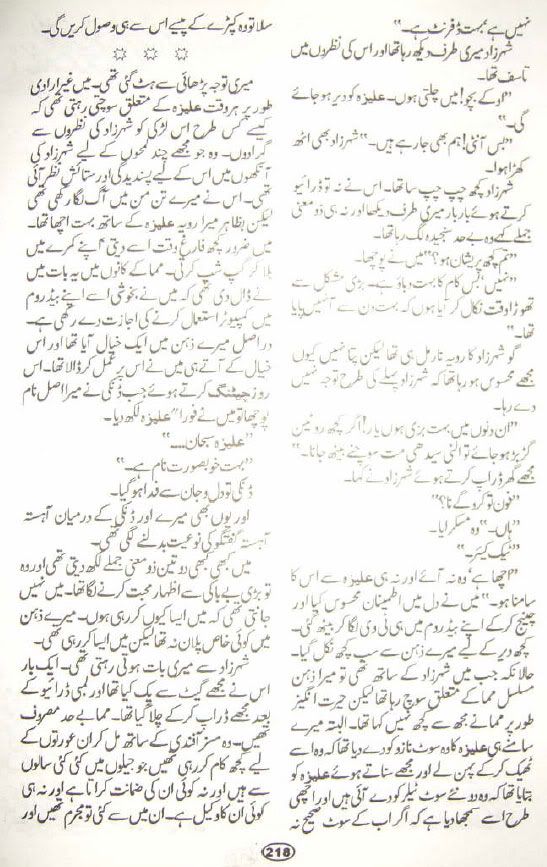 نہیں ہے بہت ڈفرنٹ ہے۔"
شہرزاد میری طرف دیکھ رہا تھا اور اس کی نظروں میں
تاسف تھا۔
"اوکے بچو! میں چلتی ہوں۔ علیزہ کو دیر ہو جائے
گی۔"
"بس آنٹی! ہم بھی جا رہے ہیں۔" شہرزاد بھی اٹھ
کھڑا ہوا۔
شہرزاد کچھ چپ چپ سا تھا۔ اس نے نہ تو ڈرائیو
کرتے ہوئے بار بار میری طرف دیکھا اور نہ ہی ذو معنی
جملے کہے وہ بے حد سنجیدہ لگ رہا تھا۔
"تم کچھ پریشان ہو؟" میں نے پوچھا۔
"نہیں، بس کام کا بہت دباؤ ہے۔ بڑی مشکل سے
تھوڑا وقت نکال کر آیا ہوں کہ بہت دن سے آ نہیں پایا
تھا۔"
گو شہرزاد کا رویہ نارمل ہی تھا لیکن پتا نہیں کیوں
مجھے محسوس ہو رہا تھا کہ شہرزاد پہلے کی طرح توجہ نہیں
دے رہا۔
"ان دنوں میں بہت بزی ہوں یار! اگر کچھ روٹین
گڑبڑ ہو جائے تو الٹی سیدھی مت سوچنے بیٹھ جانا۔"
مجھے گھر ڈراپ کرتے ہوئے شہرزاد نے کہا۔
"فون تو کرو گے نا؟"
"ہاں۔" وہ مسکرایا۔
"ٹیک کیئر۔"
"اچھا ہے وہ نہ آئے اور نہ ہی علیزہ سے اس کا
سامنا ہو۔" میں نے دل میں اطمینان محسوس کیا اور
چینج کر کے اپنے بیڈ روم میں ہی ٹی وی لگا کر بیٹھ گئی۔
کچھ دیر کے لیے میرے ذہن سے سب کچھ نکل گیا۔
حالانکہ جب میں شہرزاد کے ساتھ تھی تو میرا ذہن
مسلسل مما کے متعلق سوچ رہا تھا لیکن حیرت انگیز
طور پر مما نے مجھ سے کچھ نہیں کہا تھا۔ البتہ میرے
سامنے ہی علیزہ کا وہ سوٹ نازو کو دے دیا تھا کہ وہ اسے
ٹھیک کر کے پہن لے اور مجھے سناتے ہوئے علیزہ کو
بتایا تھا کہ وہ دو نئے سوٹ ٹیلر کو دے آئی ہیں اور اچھی
طرح اسے سمجھا دیا ہے کہ اگر اب کے سوٹ صحیح نہ
سلا تو وہ کپڑے کے پیسے اس سے ہی وصول کریں گی۔
☼ ☼ ☼
میری توجہ پڑھائی سے ہٹ گئی تھی۔ میں غیر ارادی
طور پر ہر وقت علیزہ کے متعلق سوچتی رہتی تھی کہ
کیسے کس طرح اس لڑکی کو شہرزاد کی نظروں سے
گرادوں۔ وہ جو مجھے چند لمحوں کے لیے شہرزاد کی
آنکھوں میں اس کے لیے پسندیدگی اور ستائش نظر آئی
تھی۔ اس نے میرے تن من میں آگ لگا رکھی تھی
لیکن بظاہر میرا رویہ علیزہ کے ساتھ بہت اچھا تھا۔
میں ضرور کچھ فارغ وقت اسے دیتی، اپنے کمرے میں
بلا کر گپ شپ کرتی۔ مما کے کانوں میں یہ بات میں
نے ڈال دی تھی کہ میں نے بخوشی اسے اپنے بیڈ روم
میں کمپیوٹر استعمال کرنے کی اجازت دے رکھی ہے۔
دراصل میرے ذہن میں ایک خیال آیا تھا اور اس
خیال کے آتے ہی میں نے اس پر عمل کر ڈالا تھا۔ اس
روز چیٹنگ کرتے ہوئے جب ڈنکی نے میرا اصل نام
پوچھا تو میں نے فوراً" علیزہ لکھ دیا۔
"علیزہ سبحان۔۔۔"
"بہت خوبصورت نام ہے۔"
ڈنکی تو دل و جان سے فدا ہو گیا۔
اور یوں بھی میرے اور ڈنکی کے درمیان آہستہ
آہستہ گفتگو کی نوعیت بدلنے لگی تھی۔
میں کبھی کبھی دو تین ذو معنی جملے لکھ دیتی تھی اور وہ
تو بڑی بے باکی سے اظہار محبت کرنے لگا تھا۔ میں نہیں
جانتی تھی کہ میں ایسا کیوں کر رہی ہوں۔ میرے ذہن
میں کوئی خاص پلان نہ تھا لیکن میں ایسا کر رہی تھی۔
شہرزاد سے میری بات ہوتی رہتی تھی۔ ایک بار
اس نے مجھے گیٹ سے پک کیا تھا اور لمبی ڈرائیو کے
بعد مجھے ڈراپ کر کے چلا گیا تھا۔ مما بے حد مصروف
تھیں۔ وہ مسز آفندی کے ساتھ مل کر ان عورتوں کے
لیے کچھ کام کر رہی تھیں جو جیلوں میں کئی کئی سالوں
سے ہیں اور نہ کوئی ان کی ضمانت کراتا ہے اور نہ ہی
کوئی ان کا وکیل ہے۔ ان میں سے کئی تو مجرم تھیں اور
218